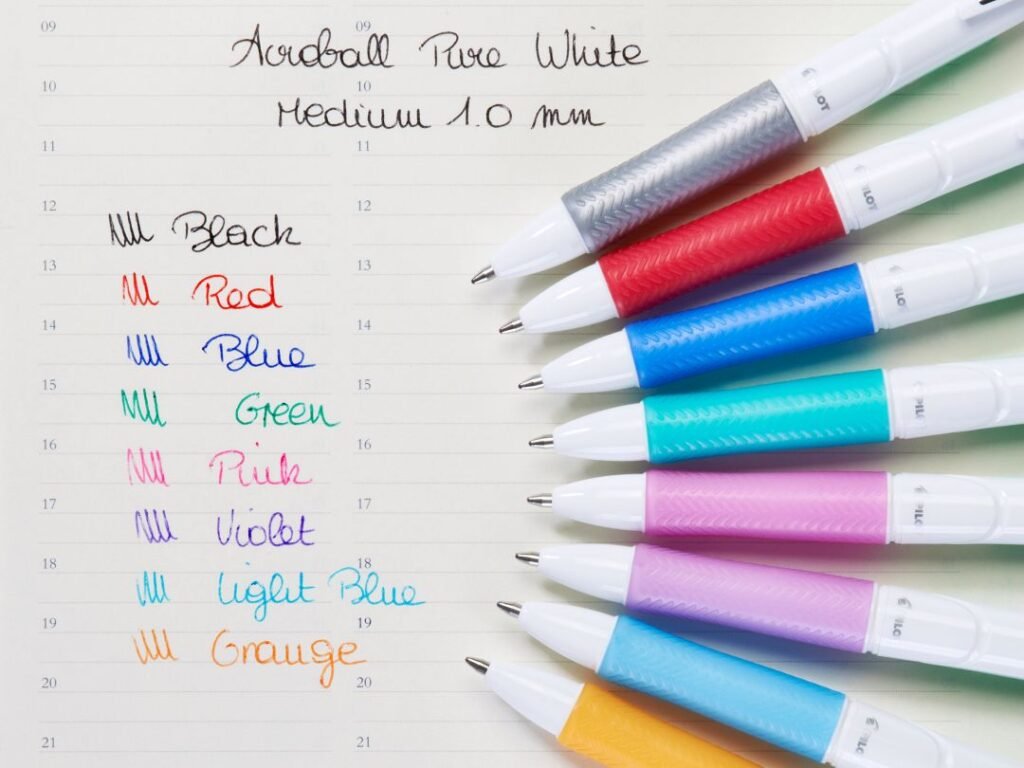 Acroball Pure White
Medium 1.0 mm
Black
Red
Blue
Green
Pink
Violet
Light Blue
Orange
09
10
11
12
13
14
15
16
17
18
19
20
21
09
10
11
12
13
14
15
16
17
18
19
20
21
PILOT
PILOT
PILO
PILO
PILO
PILO
PILO